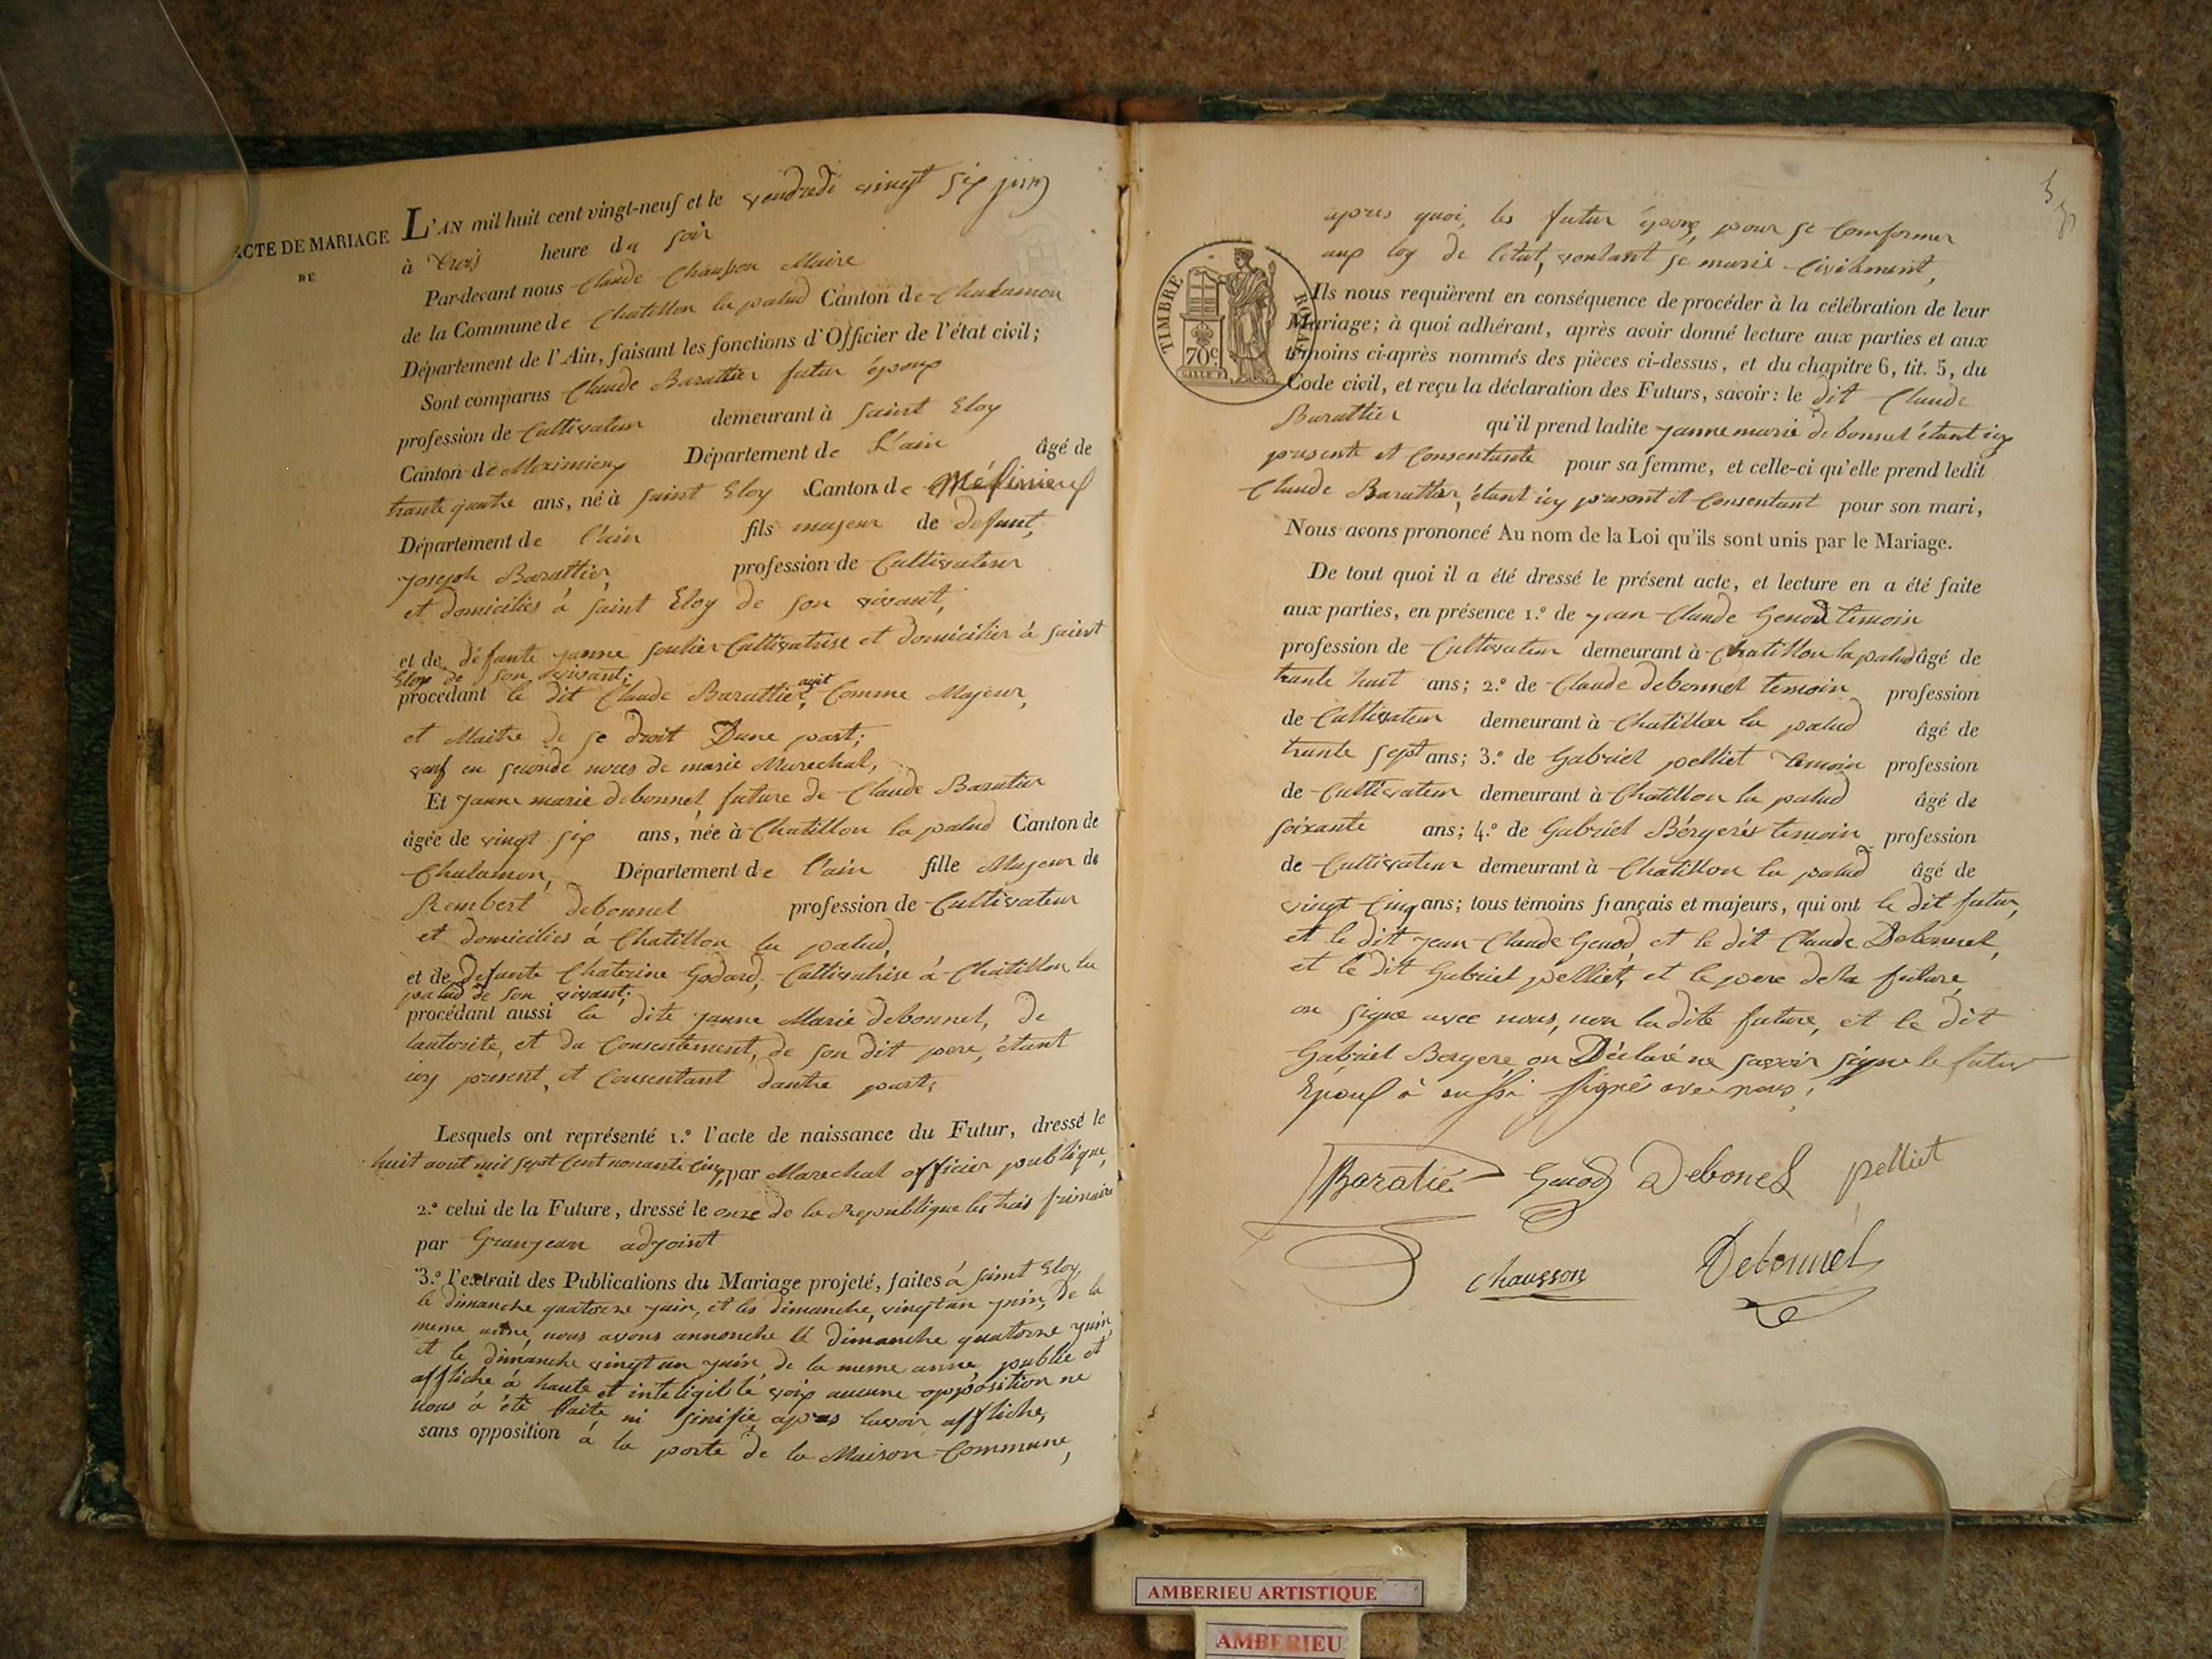 ACTE DE MARIAGE
DE
L'AN mil huit cent vingt-neuf et le vendredi vingt six juin
à trois heure du soir
Par-devant nous Claude Chausson Maire
de la Commune de Chatillon la palud Canton de Chalamon
Département de l'Ain, faisant les fonctions d'Officier de l'état civil;
Sont comparus Claude Barattier futur époux
profession de Cultivateur demeurant à Saint Eloy
Canton de Meximieux Département de L'ain âgé de
trante quatre ans, né à Saint Eloy Canton de Méximieux
Département de l'ain fils majeur de defunt,
Joseph Barattier, profession de Cultivateur
et domiciliés à Saint Eloy de son vivant,
et de défunte janne Soulier Cultivatrise et domicilier à Saint
Eloy de son vivant;
procédant le dit Claude Barattier, agit Comme Majeur,
et Maitre de se droit Dune part;
veuf en seconde noces de marie Marechal,
Et janne marie debonnel future de Claude Baratier
âgée de vingt six ans, née à Chatillon la palud Canton de
Chalamon, Département de l'ain fille Majeur de
Rembert debonnel profession de Cultivateur
et domiciliés à Chatillon la palud,
et de Defunte Chaterine Godard, Cultivatrise à Chatillon la
palud de son vivant;
procédant aussi la dite janne Marie debonnel, de
lautorite, et du Consentement, de son dit pere, étant
icy present, et Consentant dautre part;
Lesquels ont représenté 1.º l'acte de naissance du Futur, dressé le
huit aout mil sept Cent nonante cinq, par Marechal officier publique,
2.º celui de la Future, dressé le onze de la Republique les trois frimaire
par Granjean adjoint
3.º l'extrait des Publications du Mariage projeté, faites à Saint Eloy,
le dimanche quatorze juin, et les dimanche, vingt un juin, de la
meme anné, nous avons annonche lé dimanche quatorze juin,
et le dimanche vingt un juin de la meme anné publié et
affliché à haute et inteligible voix aucune opposition ne
nous à été faite ni sinifié, apres lavoir affliche,
sans opposition à la porte de la Maison Commune,
TIMBRE ROYAL
70c
apres quoi, les futur époux, pour se Comformer
aux loy de létat, voulant se marié Civilement,
Ils nous requièrent en conséquence de procéder à la célébration de leur
Mariage; à quoi adhérant, après avoir donné lecture aux parties et aux
témoins ci-après nommés des pièces ci-dessus, et du chapitre 6, tit. 5, du
Code civil, et reçu la déclaration des Futurs, savoir: le dit Claude
Barattier qu'il prend ladite janne marie debonnel étant icy
presente et Consentante pour sa femme, et celle-ci qu'elle prend ledit
Claude Barattier, étant icy present et Consentant pour son mari,
Nous avons prononcé Au nom de la Loi qu'ils sont unis par le Mariage.
De tout quoi il a été dressé le présent acte, et lecture en a été faite
aux parties, en présence 1.º de jean Claude Genod temoin
profession de Cultivateur demeurant à Chatillon la palud âgé de
trante huit ans; 2.º de Claude debonnel temoin profession
de Cultivateur demeurant à Chatillon la palud âgé de
trante sept ans; 3.º de Gabriel pelliet temoin profession
de Cultivateur demeurant à Chatillon la palud âgé de
soixante ans; 4.º de Gabriel Bérgeres temoin profession
de Cultivateur demeurant à Chatillon la palud âgé de
vingt Cinq ans; tous témoins français et majeurs, qui ont le dit futur,
et le dit jean Claude Genod, et le dit Claude Debonnel,
et le dit Gabriel pelliet, et le pere dela future
on signe avec nous, non la dite future, et le dit
Gabriel Bergere on Déclaré ne savoir signe le futur
Epoux à aussi signé avec nous.
Baratié Genod Debonel pelliet
chausson Debonnel
AMBERIEU ARTISTIQUE
AMBERIEU